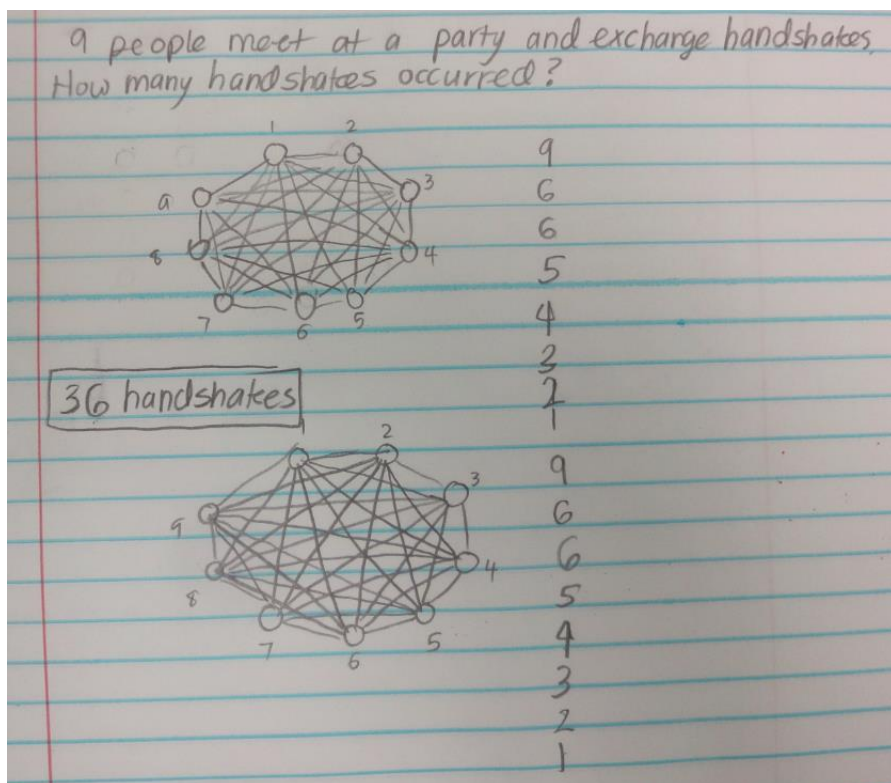 9 people meet at a party and exchange handshakes.
How many handshakes occurred?
1 2
9 3
8 4
7 6 5
9
6
6
5
4
3
2
1
36 handshakes
1 2
3
9
4
8
7 6 5
9
6
6
5
4
3
2
1